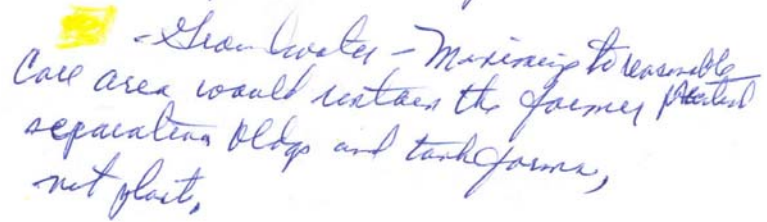 - Groundwater - Minimizing to reasonable
Core area would contain the former
separation bldgs and tank farms,
not plants,